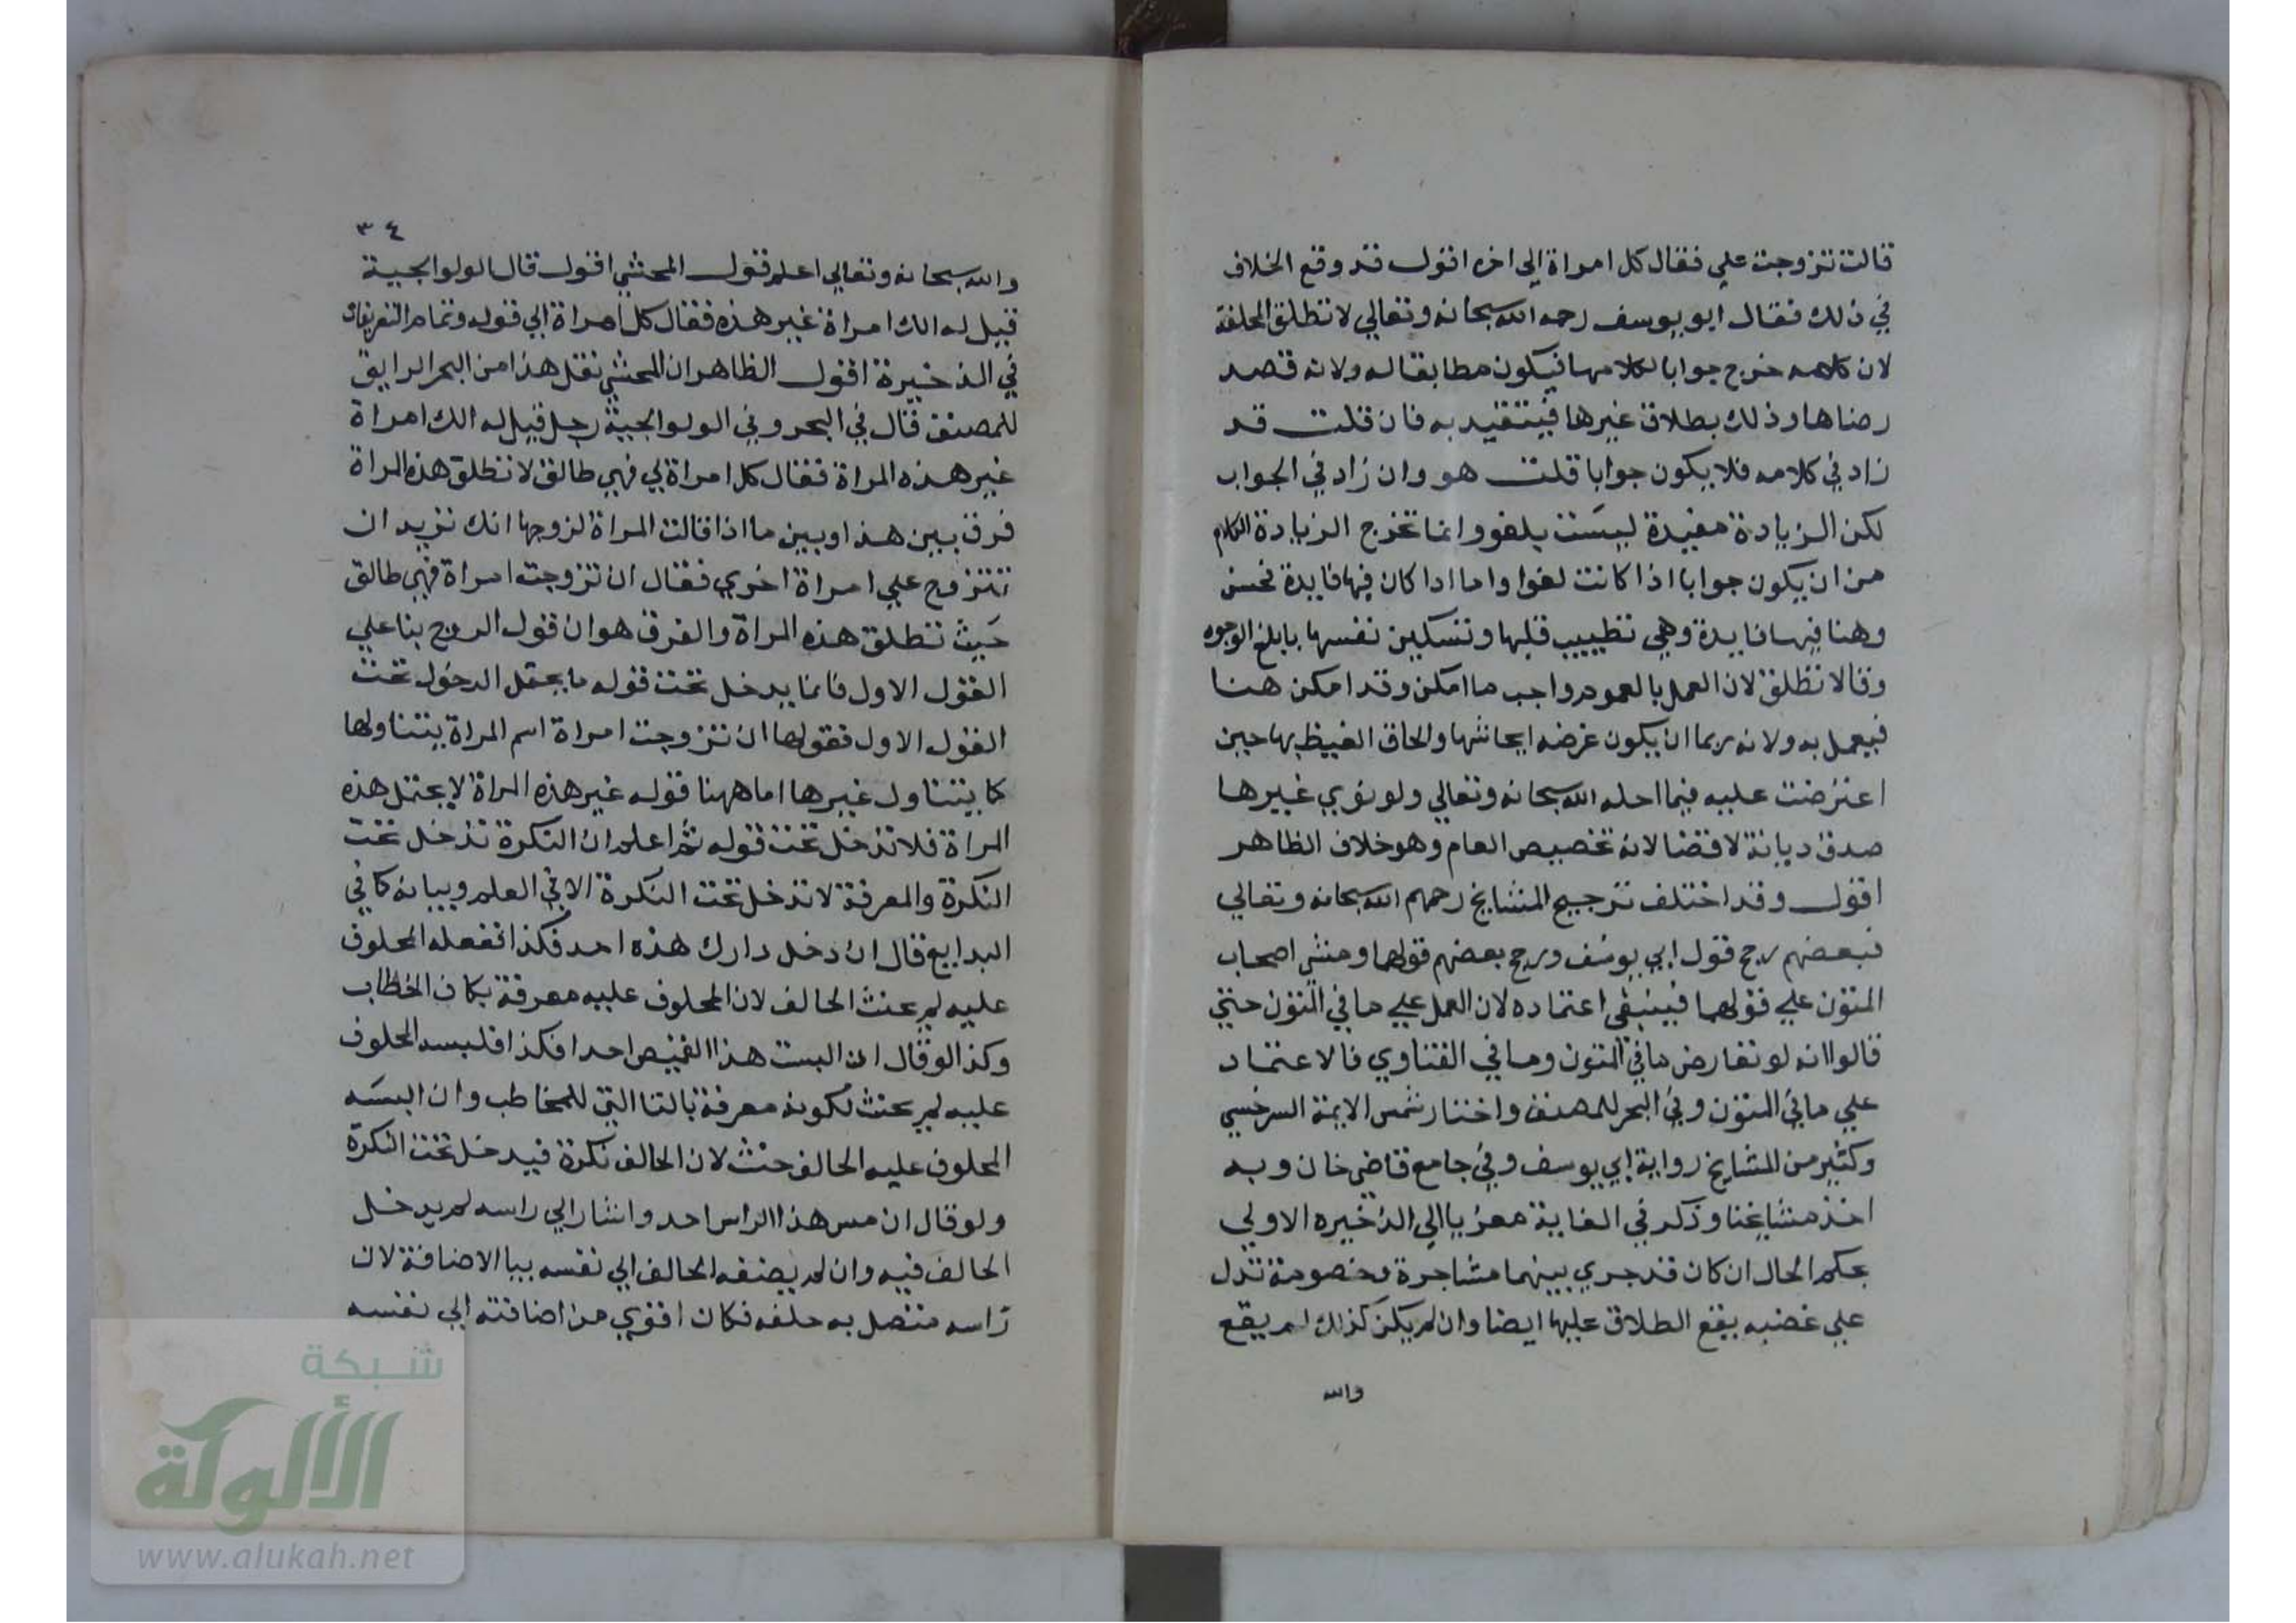 قالت تزوجت علي فقال كل امراة الي اخره اقول قد وقع الخلاف
في ذلك فقال ابو يوسف رحمه الله سبحانه وتعالي لا تطلق المحلفة
لان كلامه خرج جوابا لكلامها فيكون مطابقا له ولانه قصد
رضاها وذلك بطلاق غيرها فيتقيد به فان قلت قد
زاد في كلامه فلا يكون جوابا قلت هو وان زاد في الجواب
لكن الزيادة مفيدة ليست بلغو وانما تخرج الزيادة الكلام
من ان يكون جوابا اذا كانت لغوا واما اذا كان فيها فايدة فحسن
وهنا فيها فايدة وهي تطييب قلبها وتسكين نفسها بابلغ الوجوه
وقالا تطلق لان العمل بالعموم واجب ما امكن وقد امكن هنا
فيعمل به ولانه ربما ان يكون غرضه ايحاشها والحاق الغيظ بها حين
اعترضت عليه فيما احله الله سبحانه وتعالي ولو نوي غيرها
صدق ديانة لا قضا لانه تخصيص العام وهو خلاف الظاهر
اقول وقد اختلف ترجيح المشايخ رحمهم الله سبحانه وتعالي
فبعضهم رجح قول ابي يوسف ورجح بعضهم قولهما ومشي اصحاب
المتون علي قولهما فينبغي اعتماده لان العمل علي ما في المتون حتي
قالوا انه لو تعارض ما في المتون وما في الفتاوي فالاعتماد
علي ما في المتون وفي البحر للمصنف واختار شمس الايمة السرخسي
وكثير من المشايخ رواية ابي يوسف وفي جامع قاضي خان وبه
اخذ مشايخنا وذكر في الغاية معزيا الي الذخيره الاولي
يحكم الحال ان كان قد جري بينهما مشاجرة وخصومة تدل
علي غضبه يقع الطلاق عليها ايضا وان لم يكن كذلك لم يقع
والله
٣٤
والله سبحانه وتعالي اعلم قول المحشي اقول قال الولوالجية
قيل له الك امراة غير هذه فقال كل امراة الي قوله وتمام التفريعات
في الذخيرة اقول الظاهر ان المحشي نقل هذا من البحر الرايق
للمصنف قال في البحر وفي الولوالجية رجل قيل له الك امراة
غير هذه المراة فقال كل امراة لي فهي طالق لا تطلق هذه المراة
فرق بين هذا وبين ما اذا قالت المراة لزوجها انك تريد ان
تتزوج علي امراة اخري فقال ان تزوجت امراة فهي طالق
حيث تطلق هذه المراة والفرق هو ان قول الزوج بنا علي
القول الاول فانما يدخل تحت قوله ما يحتمل الدخول تحت
القول الاول فقولها ان تزوجت امراة اسم المراة يتناولها
كما يتناول غيرها اما ههنا قوله غير هذه المراة لا يحتمل هذه
المراة فلا تدخل تحت قوله ثم اعلم ان النكرة تدخل تحت
النكرة والمعرفة لا تدخل تحت النكرة الا في العلم وبيانه كما في
البدايع قال ان دخل دارك هذه احد فكذا ففعله المحلوف
عليه لم يحنث الحالف لان المحلوف عليه معرفة بكاف الخطاب
وكذا لو قال ان البست هذا القميص احدا فكذا فلبسه المحلوف
عليه لم يحنث لكونه معرفة بالتا التي للمخاطب وان البسه
المحلوف عليه الحالف حنث لان الحالف نكرة فيدخل تحت النكرة
ولو قال ان مس هذا الراس احد واشار الي راسه لم يدخل
الحالف فيه وان لم يضفه الحالف الي نفسه بيا الاضافة لان
راسه متصل به خلقه فكان اقوي من اضافته الي نفسه
شبكة
الألوكة
www.alukah.net